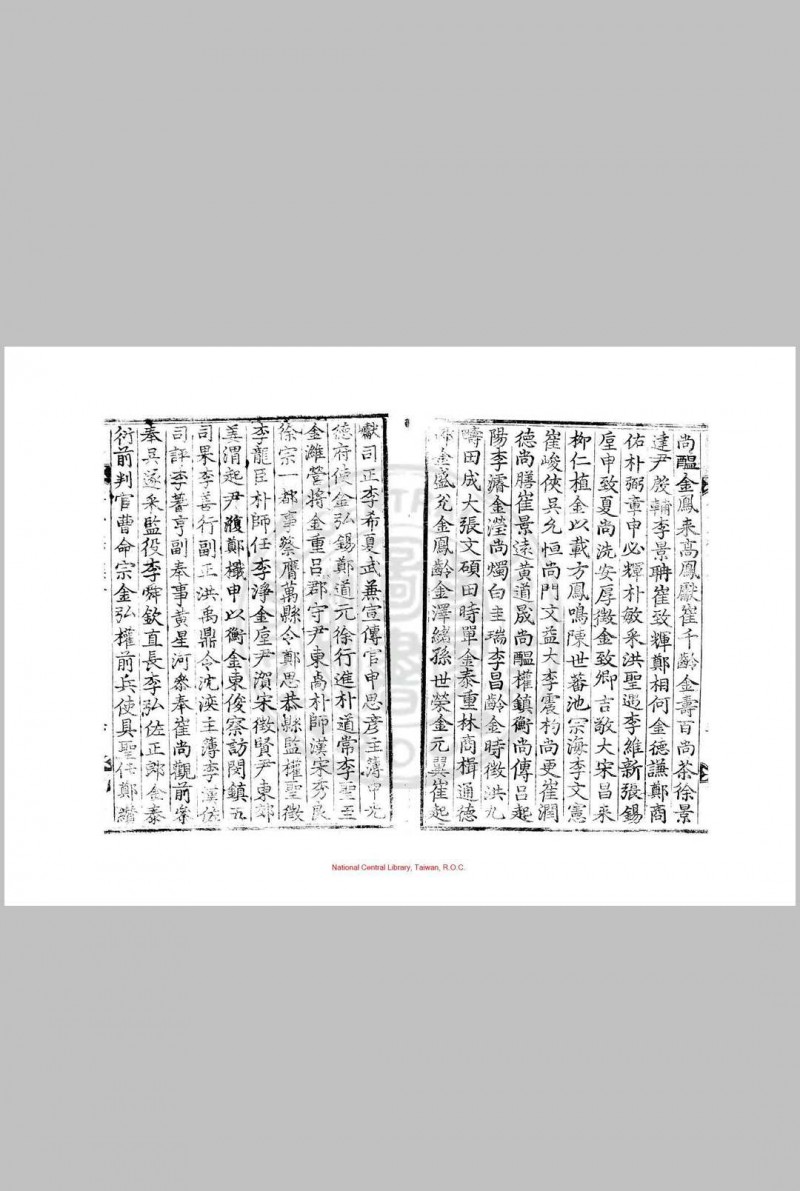 尚醞金鳳来高鳳獻崔千齡金壽百尚茶徐景
達尹殷輔李景聃崔致輝鄭相何金德謙鄭商
佑朴弼章申必輝朴敏采洪聖遐李維新張錫
垕申致夏尚洗安厚徵金致卿吉敬大宋昌采
柳仁植金以載方鳳鳴陳世蕃池宗海李文憲
崔峻俠吳允恒尚門文益大李震杓尚更崔潤
德尚膳崔景遠黃道晟尚醞權鎮衡尚傳呂起
陽李濬金瀅尚燭白圭瑞李昌齡金時徵洪九
疇田成大張文碩田時單金泰重林商楫通德
郎金盛兌金鳳齡金澤繡孫世榮金元翼崔起
獻司正李希夏武兼宣傳官申思彦主薄申光
德府使金弘錫鄭道元徐行進朴道常李聖至
金濰營將金重呂郡守尹東卨朴師漢宋秀良
徐宗一都事蔡膺萬縣令鄭思恭縣監權聖徵
李龍臣朴師任李淨金垕尹濱宋徵賢尹東郊
姜渭起尹馥鄭檥申以衡金東俊察訪閔鎮五
司果李善行副正洪禹鼎令沈浹主薄李漢佐
司評李蓍亨副奉事黃星河叅奉崔尚觀前掌
奉吳遂采監役李舜欽直長李弘佐正郎金泰
衍前判官曹命宗金弘權前兵使具聖任鄭纘
National Central Library, Taiwan, R.O.C.